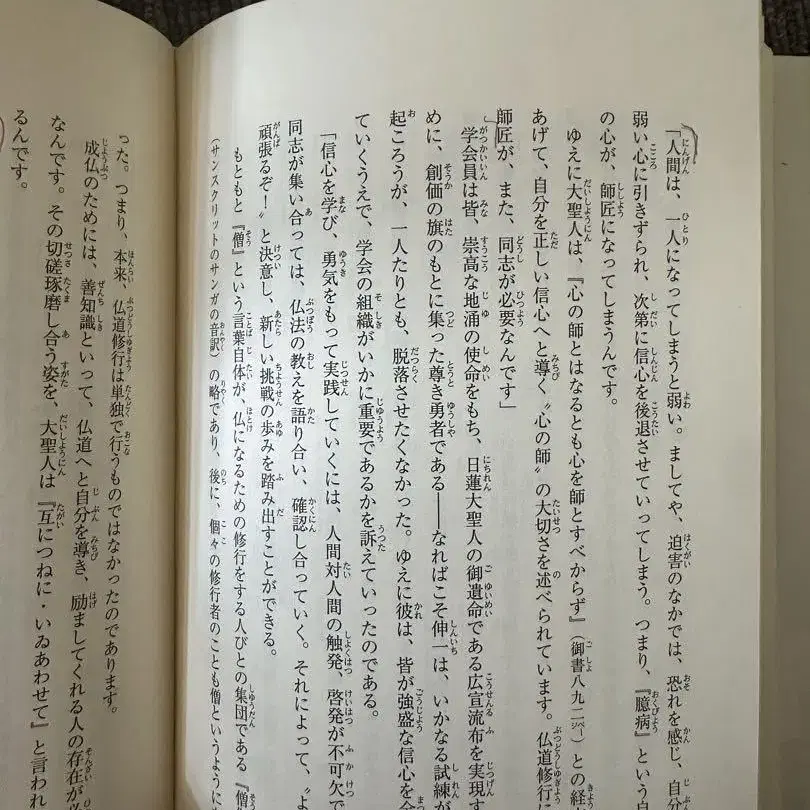 「人間は、一人になってしまうと弱い。ましてや、迫害のなかでは、恐れを感じ、自分
弱い心に引きずられ、次第に信心を後退させていってしまう。つまり、『臆病』という自
の心が、師匠になってしまうんです。
ゆえに大聖人は、『心の師とはなるとも心を師とすべからず』（御書八九二㌻）との経
あげて、自分を正しい信心へと導く〝心の師〟の大切さを述べられています。仏道修行に
師匠が、また、同志が必要なんです」
学会員は皆、崇高な地涌の使命をもち、日蓮大聖人の御遺命である広宣流布を実現す
めに、創価の旗のもとに集った尊き勇者である――なればこそ伸一は、いかなる試練が
起ころうが、一人たりとも、脱落させたくなかった。ゆえに彼は、皆が強盛な信心を
ていくうえで、学会の組織がいかに重要であるかを訴えていったのである。
「信心を学び、勇気をもって実践していくには、人間対人間の触発、啓発が不可欠で
同志が集い合っては、仏法の教えを語り合い、確認し合っていく。それによって、〝よ
頑張るぞ！〟と決意し、新しい挑戦の歩みを踏み出すことができる。
もともと『僧』という言葉自体が、仏になるための修行をする人びとの集団である『僧
（サンスクリットのサンガの音訳）の略であり、後に、個々の修行者のことも僧というように
った。つまり、本来、仏道修行は単独で行うものではなかったのであります。
成仏のためには、善知識といって、仏道へと自分を導き、励ましてくれる人の存在が
なんです。その切磋琢磨し合う姿を、大聖人は『互につねに・いゐあわせて』と言われ
るんです。